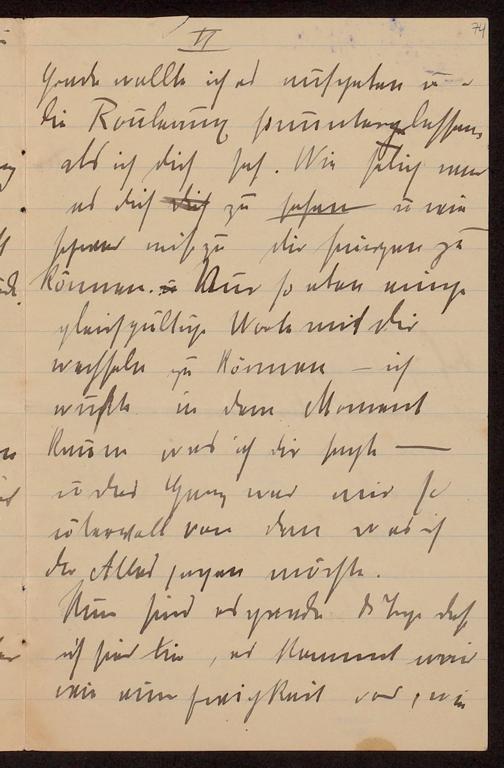 VI
74
Grade wollte ich es aufgeben u
die Rouleaux herunterlassen,
als ich dich sah. Wie selig war
es dich dich zu sehen u wie
schwer nicht zu dir zu
können. u Nur so eben einige
gleichgültige Worte mit dir
wechseln zu können – ich
wußte in dem Moment
kaum was ich dir sagte —
u das war mir so
übervoll von dem was ich
dir Alles sagen möchte.
Nun sind es grade 8 Tage daß
ich hier bin, es kommt mir
wie eine Ewigkeit vor, wie